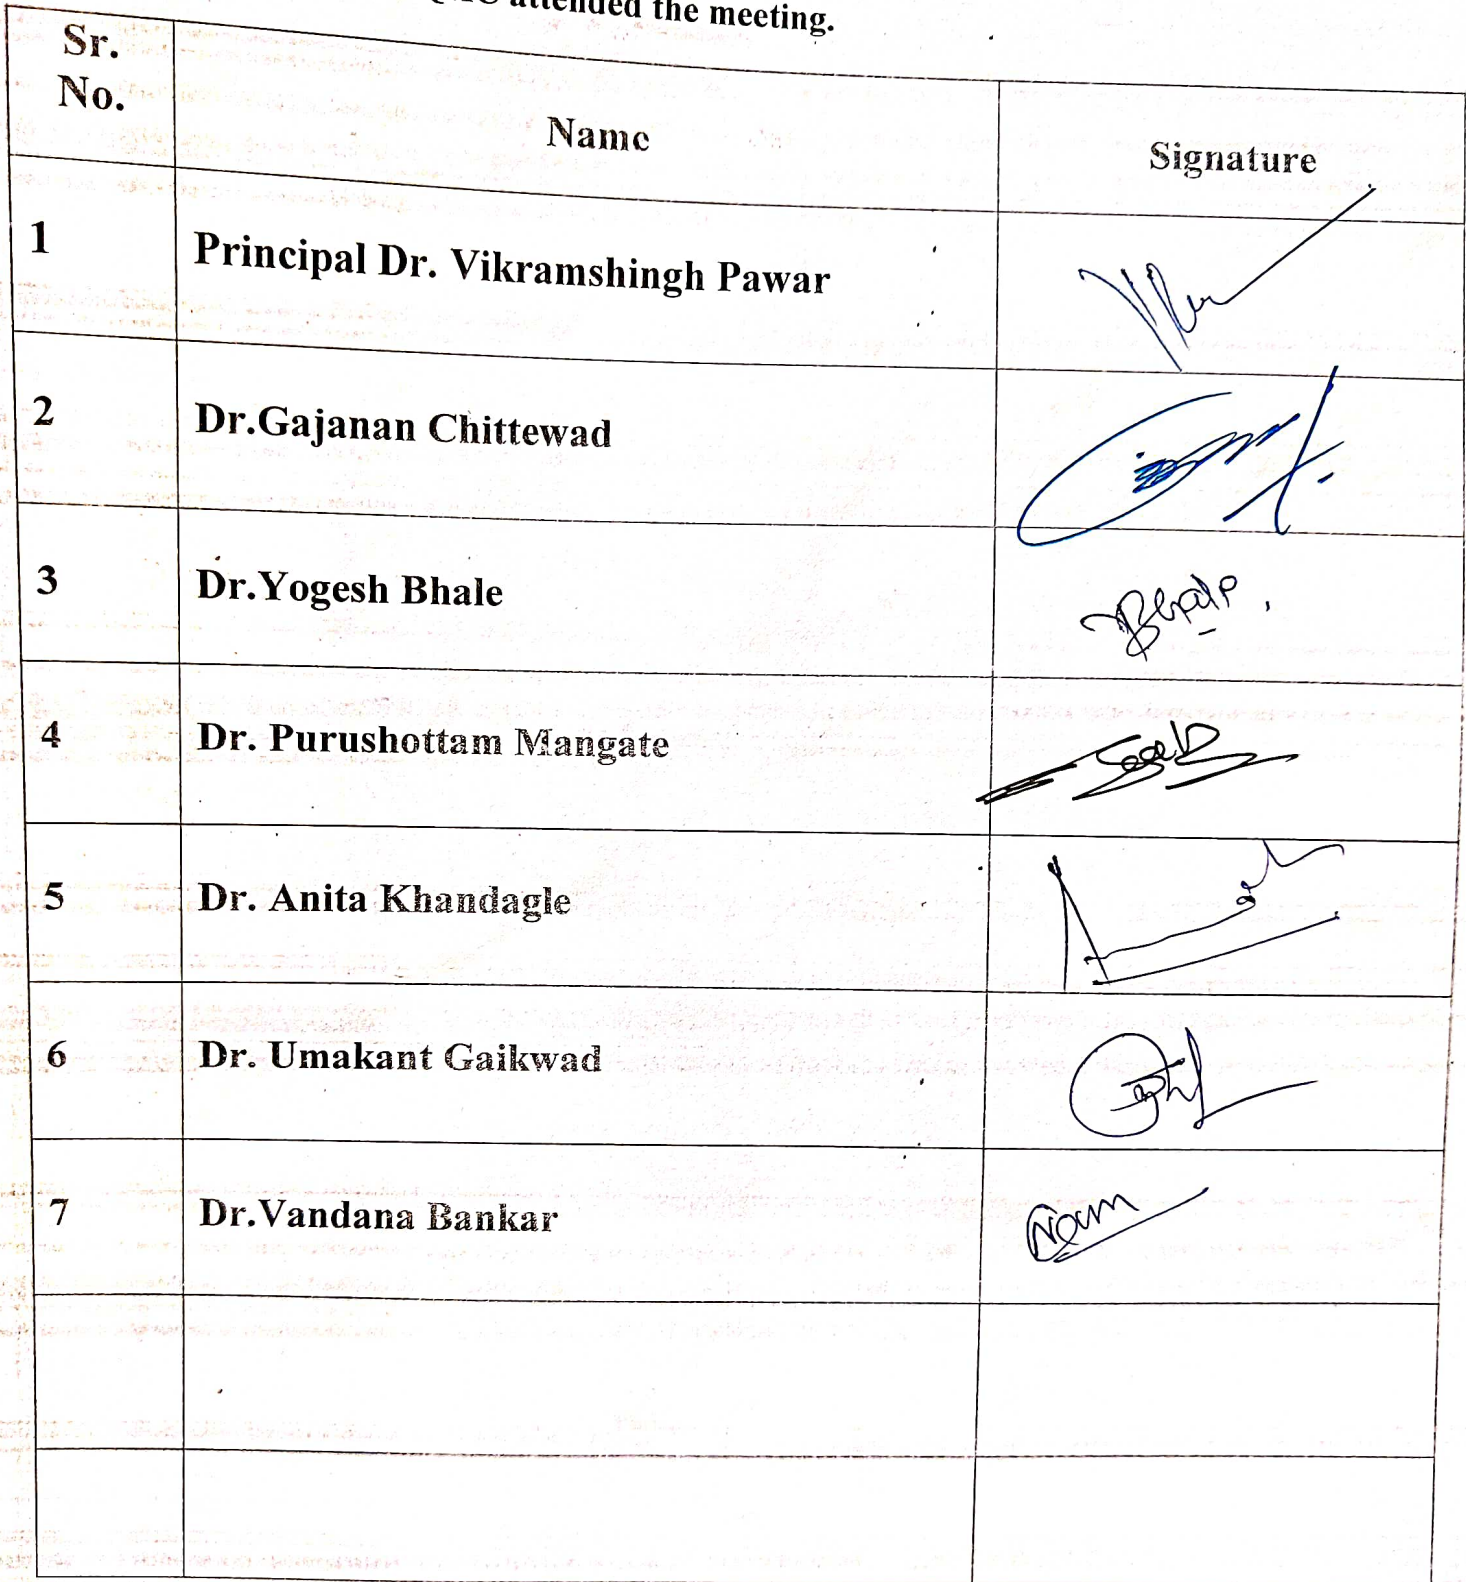 attended the meeting.
Sr.
No.
Name
Signature
1
Principal Dr. Vikramshingh Pawar
2
Dr.Gajanan Chittewad
3
Dr.Yogesh Bhale
Bhale
4
Dr. Purushottam Mangate
5
Dr. Anita Khandagle
6
Dr. Umakant Gaikwad
7
Dr.Vandana Bankar